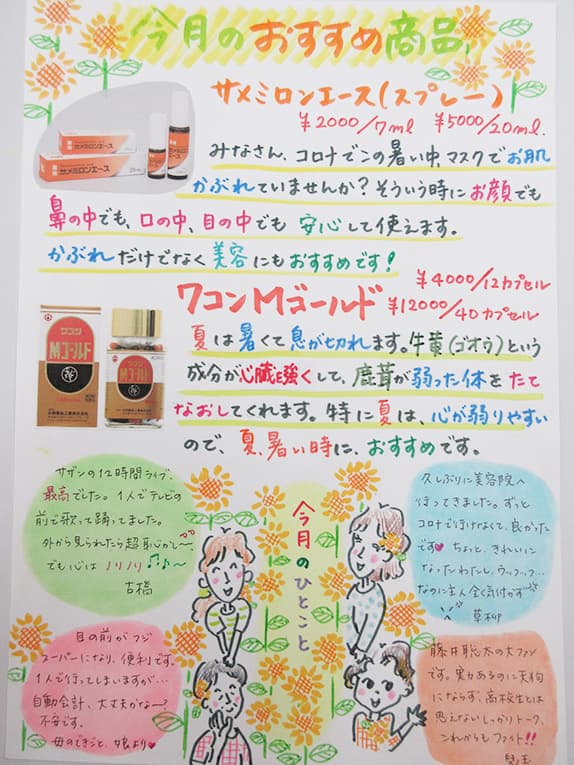 今月のおすすめ商品
サメミロンエース(スプレー)
¥2000/7ml ¥5000/20ml.
サメミロンエース
みなさん、コロナでこの暑い中、マスクでお肌
かぶれていませんか?そういう時にお顔でも
鼻の中でも、口の中、目の中でも 安心して使えます。
かぶれだけでなく美容にもおすすめです!
¥4000/12カプセル
ワコンMゴールド ¥12000/40カプセル
ワコン
Mゴールド
Mゴールド
夏は暑くて息が切れます。牛黄(ゴオウ)という
成分が心臓を強くして、鹿茸が弱った体をたて
なおしてくれます。特に夏は、心が弱りやすい
ので、夏、暑い時に、おすすめです。
サザンの12時間ライブ、
最高でした。1人でテレビの
前で歌って踊ってました。
外から見られたら超恥かし〜
でも心はノリノリ♫♪〜
古橋
今月のひとこと
久しぶりに美容院へ
行ってきました。ずっと
コロナで行けなくて、良かった
です♥ ちょっと、きれいに
なったわたし、ウッフッフ…
なのに主人全く気付かず
草柳
目の前がフジ
スーパーになり、便利です。
1人で行ってしまいますが…
自動会計、大丈夫かな〜?
不安です。
母のできごと、娘より♥
藤井聡太の大ファン
です。実力あるのに天狗
にならず、高校生とは
思えないしっかりトーク、
これからもファイト!!